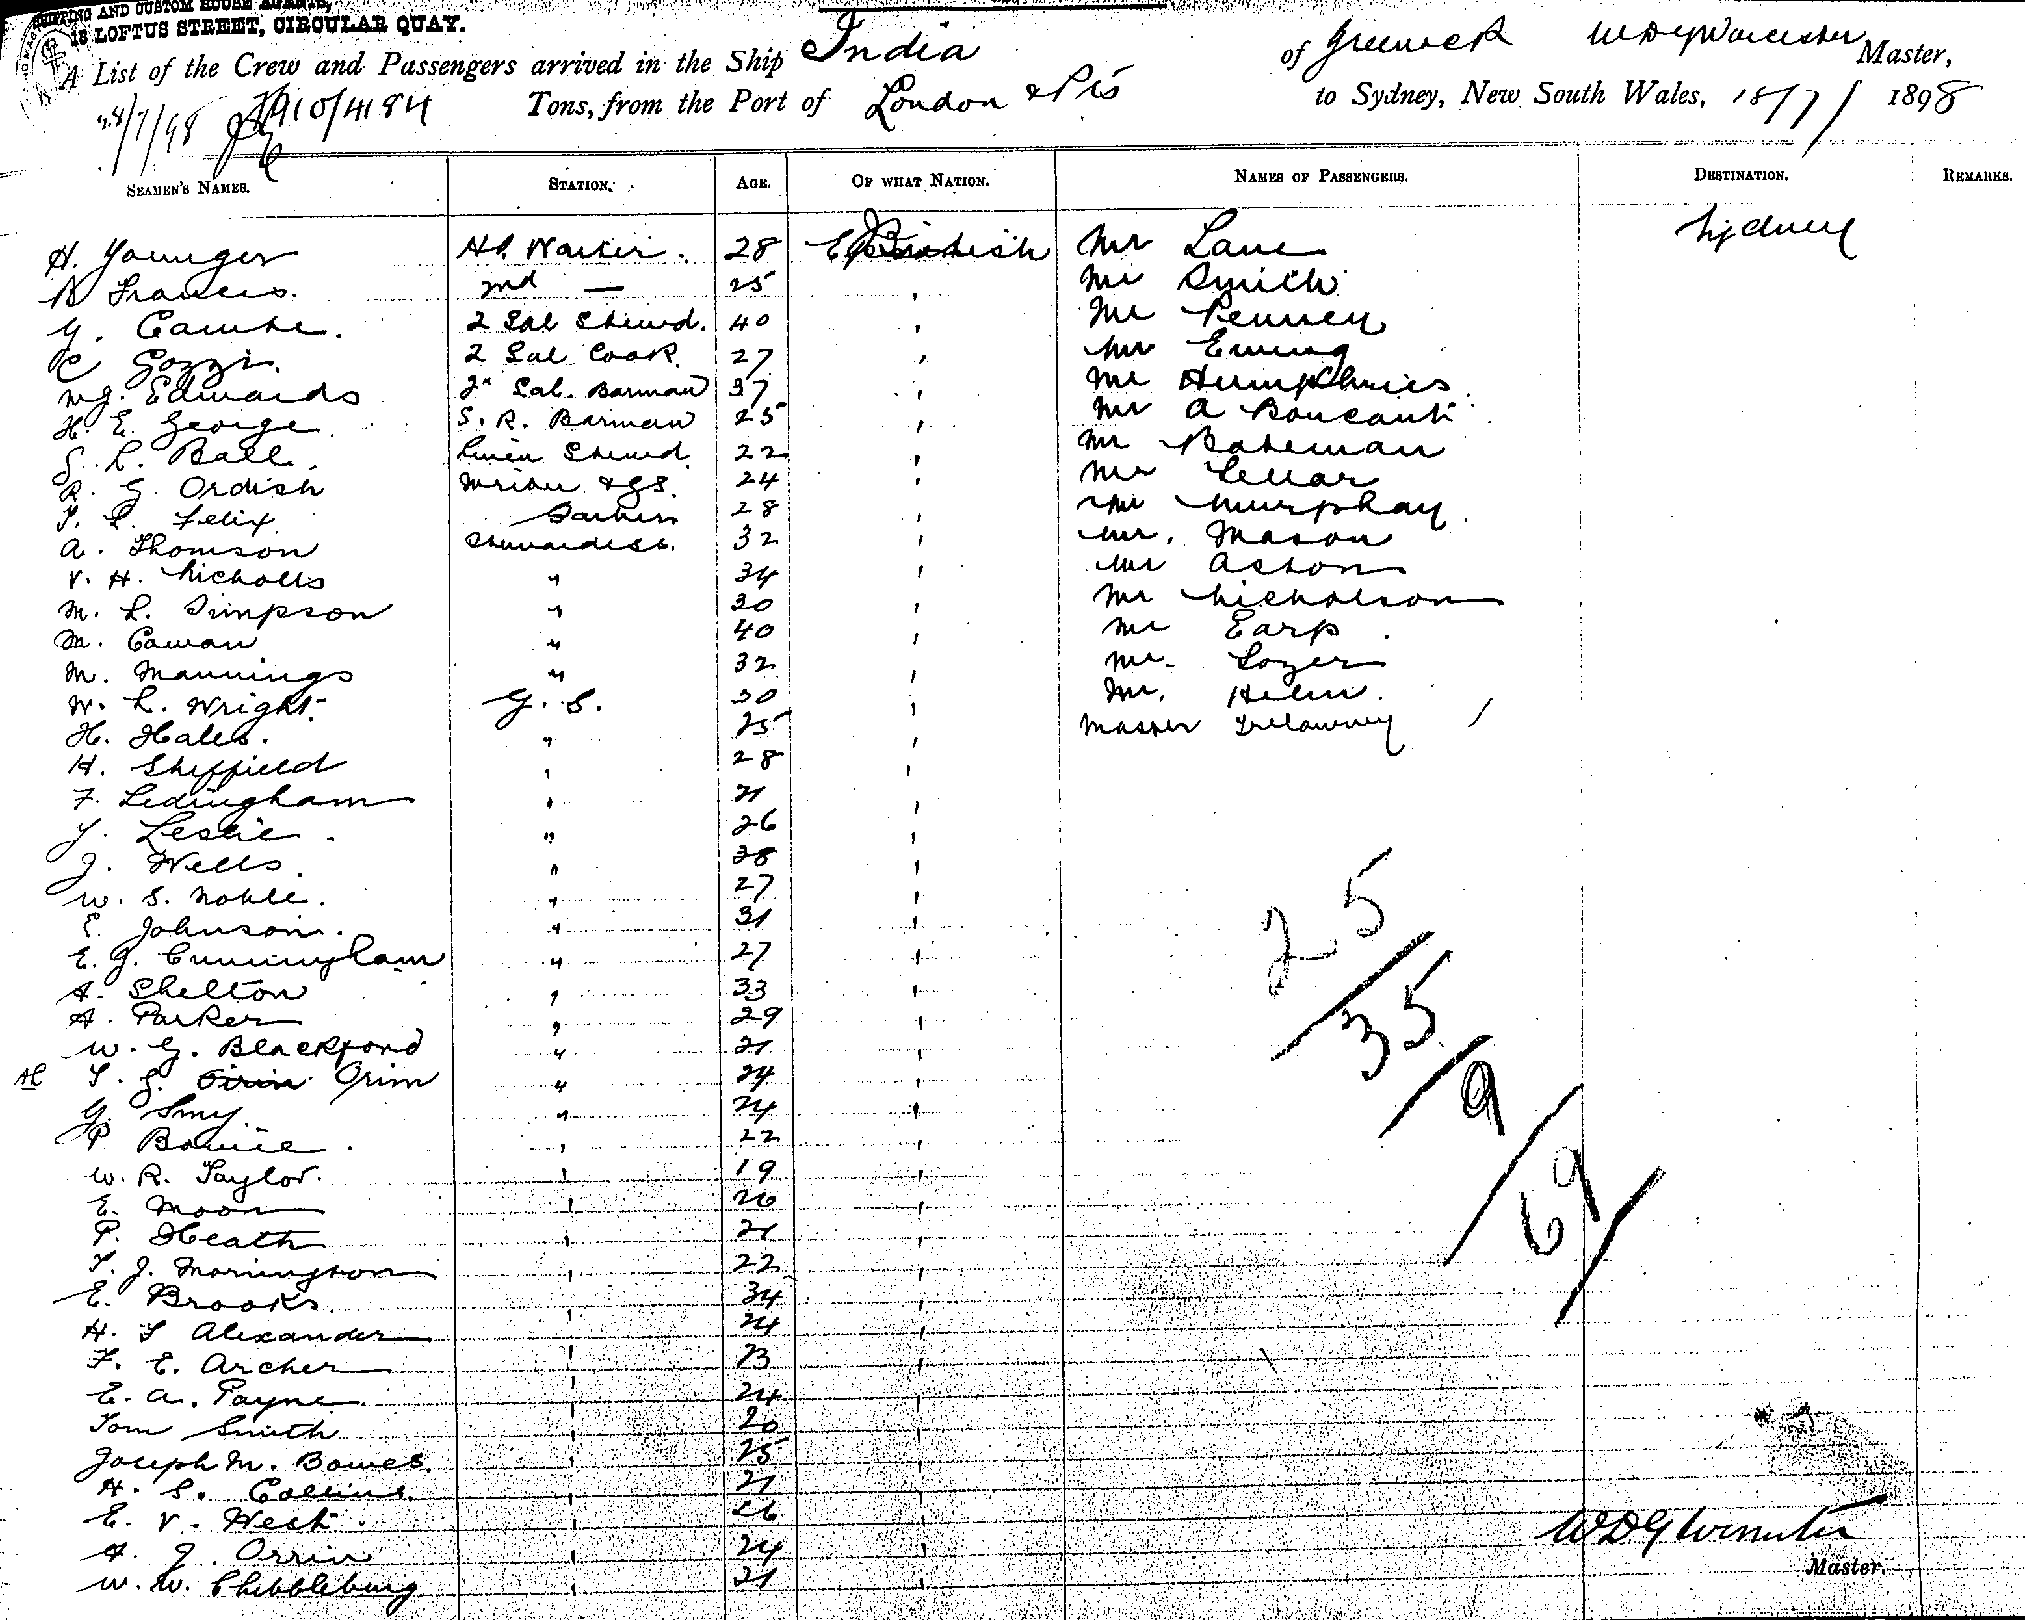 SHIPPING AND CUSTOM HOUSE AGENTS,
18 LOFTUS STREET, CIRCULAR QUAY.
A List of the Crew and Passengers arrived in the Ship India of Greenock W D G Worcester Master,
Tons, from the Port of London & Pts to Sydney, New South Wales, 18/7/ 1898
28/7/98 7910/4184
SEAMEN'S NAMES. STATION. AGE. OF WHAT NATION. NAMES OF PASSENGERS. DESTINATION. REMARKS.
H. Younger 28 British Mr Lane Sydney
Francis. 2nd — 25 " Mr Smith
G. 2 Sal Steward. 40 " Mr Penney
C Gozzi. 2 Sal Cook. 27 " Mr Ewing
W J. Edwards 2" Sal. Barman 37 " Mr Humphries
H. E. George S. R. Barman 25 " Mr A Boucaut
S. L. Ball. Linen Steward 22 " Mr Bateman
R. G. Ordish & GS. 24 " Mr Sellar
F. L. Felix 28 " Mr Murphay
A. Thomson Stewardess. 32 " Mr. Mason
V. H. Nicholls " 34 " Mr Aston
M. L. Simpson " 30 " Mr Nicholson
M. Cowan " 40 " Mr Earp
M. Mannings " 32 " Mr. Sozer
W. L. Wright. G. S. 30 " Mr. Helm.
H. Hales. " 25 " Master Trelawney /
H. Sheffield " 28 "
F. Ledingham " 21 "
J. Leslie " 26 "
J. Wells. " 38 "
W. S. Noble. " 27 "
E. Johnson. " 31 "
E. J. Cunningham " 27 "
A. Shelton " 33 "
A. Parker " 29 "
W. G. Blackford " 21 "
T. G. Grim " 24 "
G. Smy " 24 "
P Bowie " 22 "
W. R. Taylor. " 19 "
E. Moon " 26 "
P. Heath " 21 "
T. J. Mornington " 22 "
E. Brooks. " 34 "
H. T Alexander " 24 "
F. E. Archer " 23 "
E. A. Payne " 24 "
Tom Smith " 20 "
Joseph M. Bowes. " 25 "
H. S. Collins. " 21 "
E. V. West. " 26 "
A. J. Orrin " 24 "
W. W. Chibbleburg " 21 "
25/35/9/69/
W D G Worcester
Master.